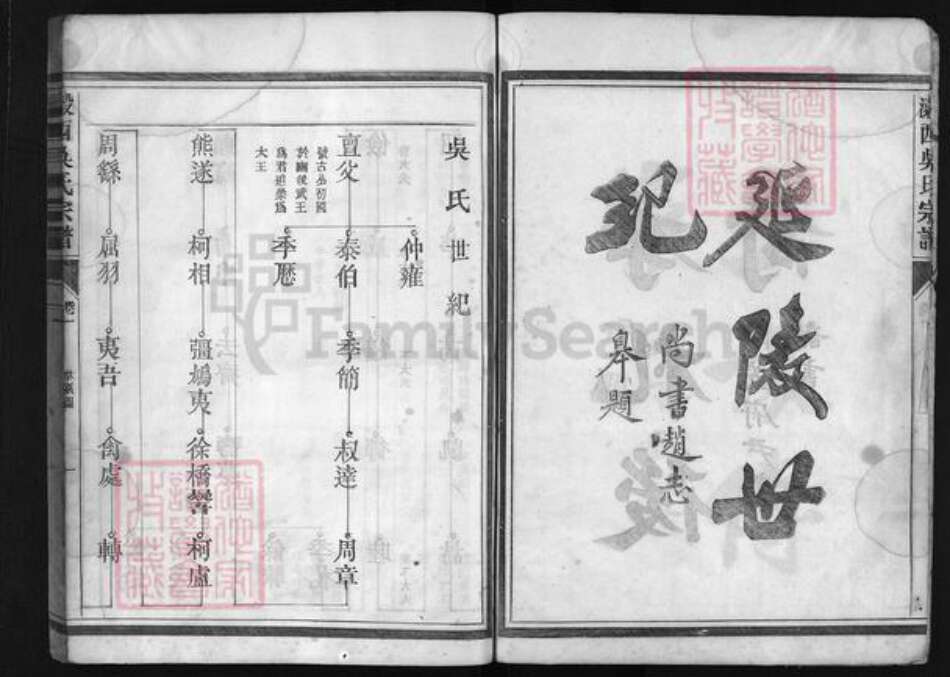 延陵世
紀
尚書趙志
皋題
吳氏世紀
亶父
號古公初國
於豳後武王
爲君追崇爲
大王
仲雍
泰伯 季簡 叔達 周章
季歷
熊遂 柯相 彊鳩夷 徐橋 柯盧
周繇 屈羽 夷吾 禽處 轉
西吳氏宗譜
吳氏宗譜
卷一
FamilySearch